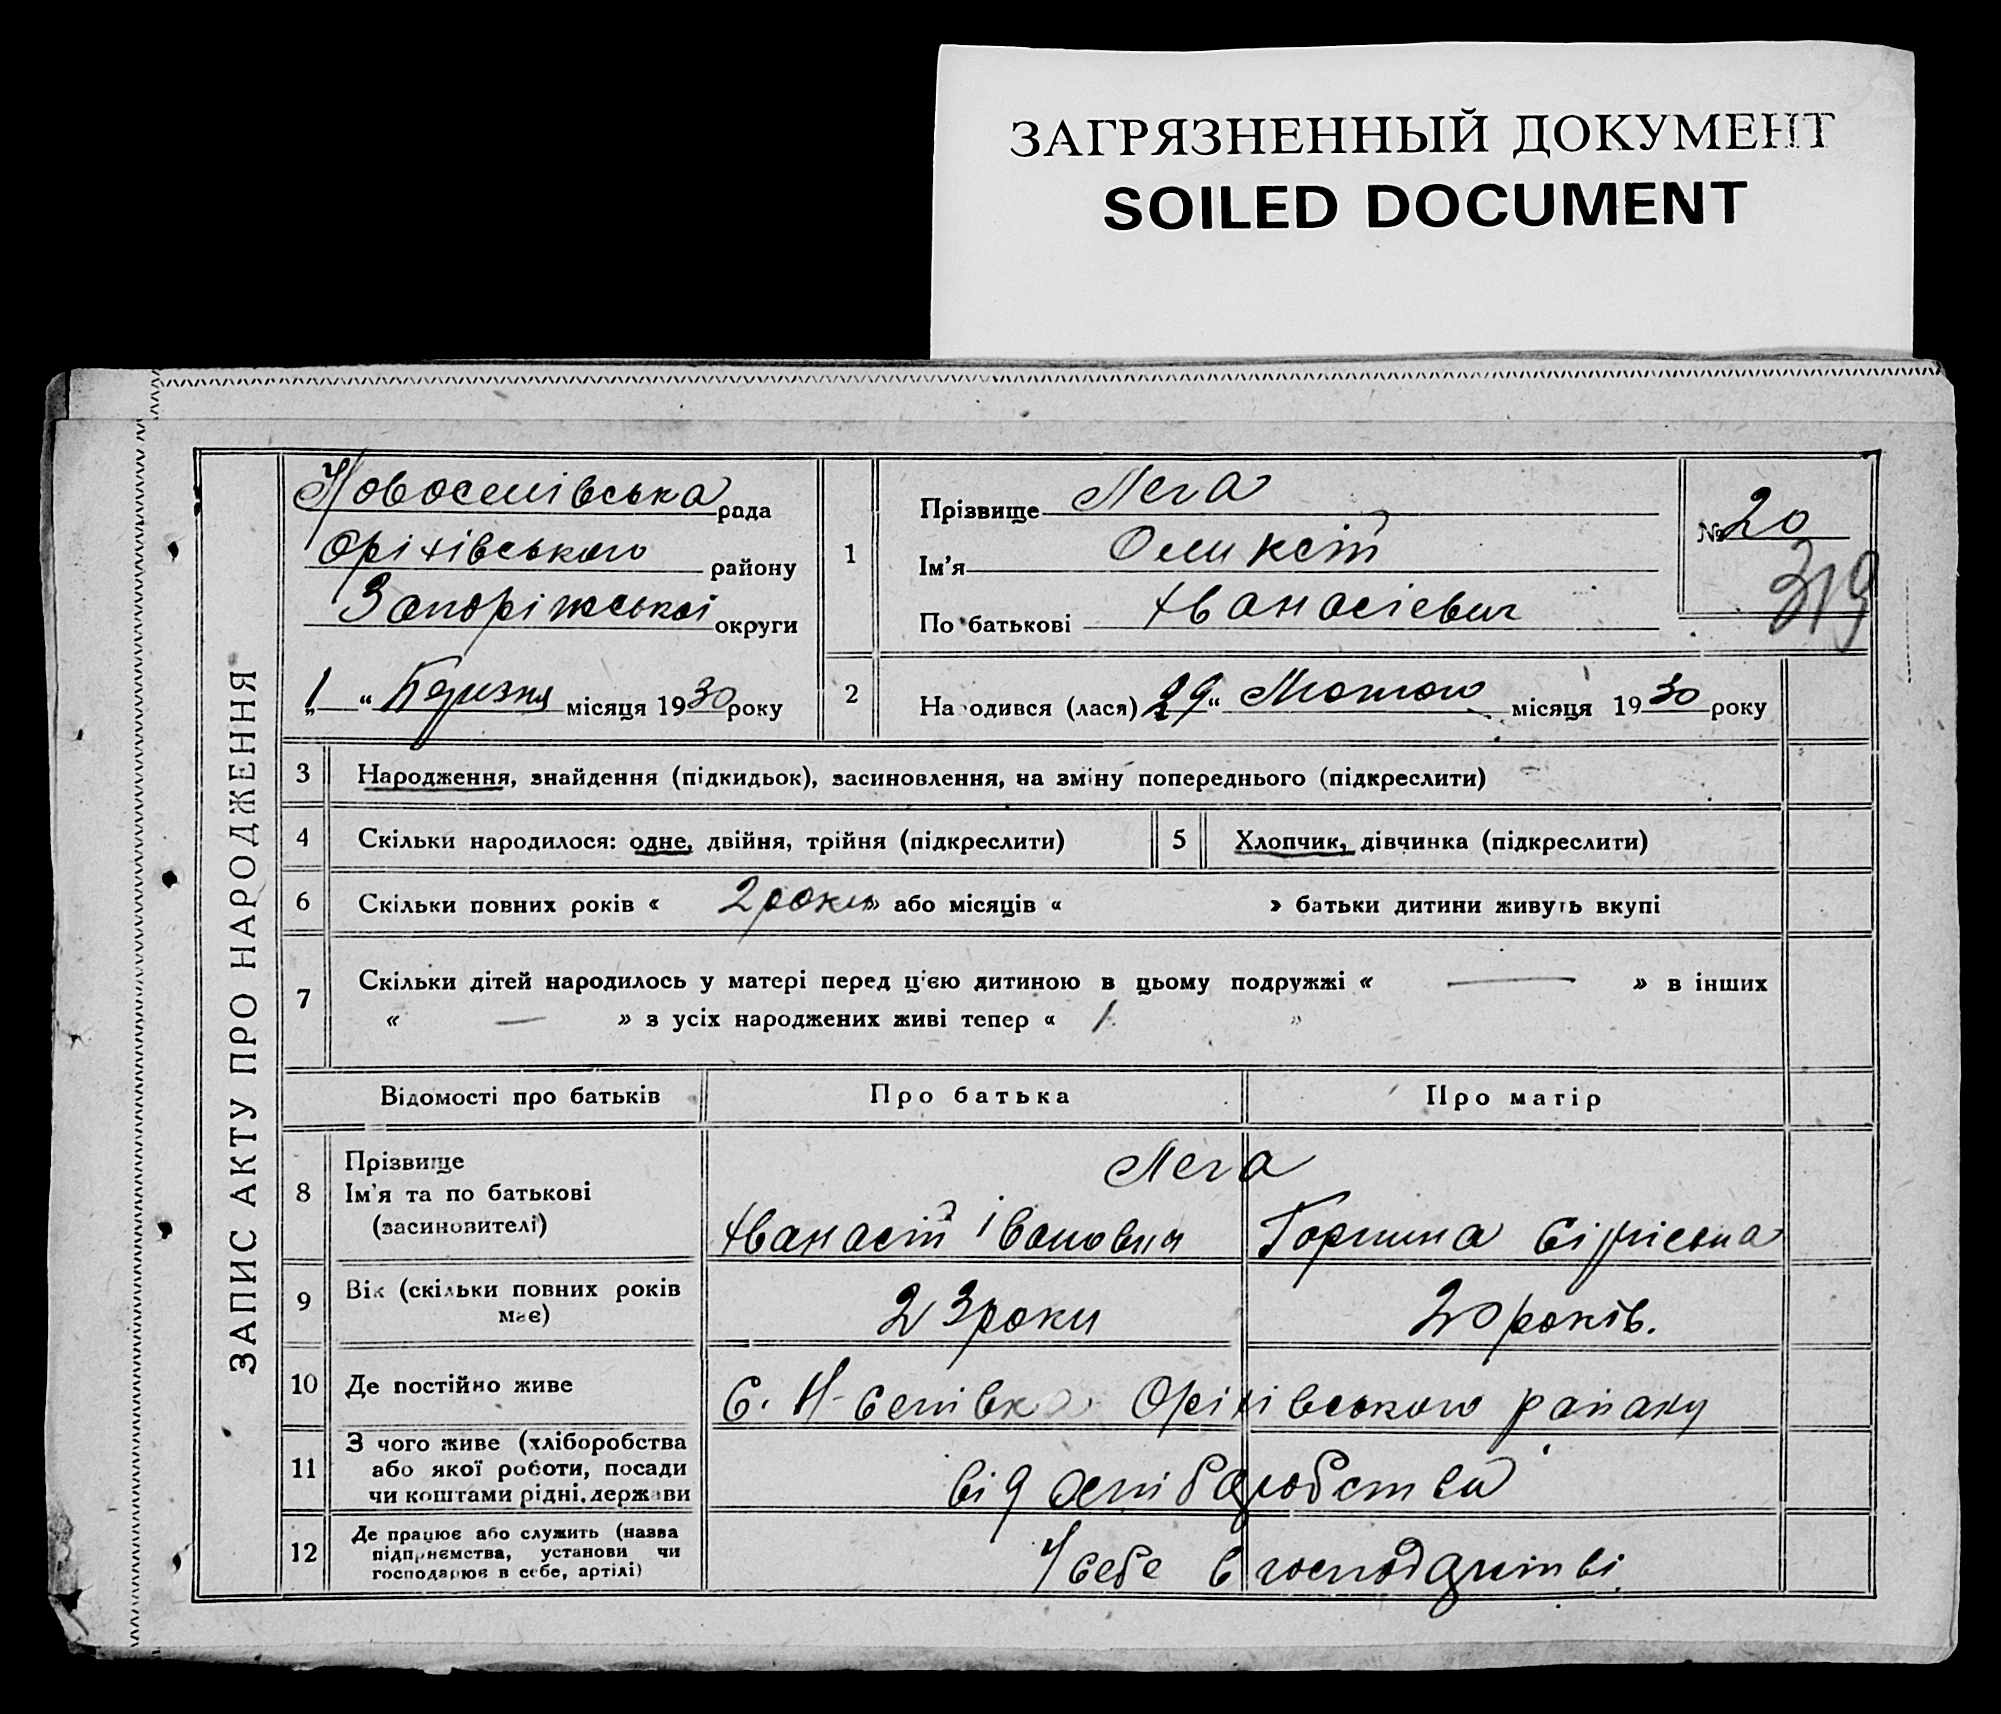 ЗАГРЯЗНЕННЫЙ ДОКУМЕНТ
SOILED DOCUMENT
ЗАПИС АКТУ ПРО НАРОДЖЕННЯ
Новоселівська рада
Оріхівського району
Запоріжської округи
„1“ Березня місяця 1930 року
1 Прізвище Лега
Ім'я
По батькові
№ 20
319
2 Народився (лася) 29 “ Лютого місяця 1930 року
3 Народження, знайдення (підкидьок), засиновлення, на зміну попереднього (підкреслити)
4 Скільки народилося: одне, двійня, трійня (підкреслити)
5 Хлопчик, дівчинка (підкреслити)
6 Скільки повних років « 2 роки » або місяців « » батьки дитини живуть вкупі
7 Скільки дітей народилось у матері перед ц'єю дитиною в цьому подружжі « — » в інших
« — » з усіх народжених живі тепер « 1 »
Відомості про батьків
Про батька
Про матір
8 Прізвище
Ім'я та по батькові
(засиновителі)
Лега
Іванович
9 Вік (скільки повних років
має)
23 роки
20 років.
10 Де постійно живе
с. Н-Селівка Оріхівського району
11 З чого живе (хліборобства
або якої роботи, посади
чи коштами рідні, держави
від
12 Де працює або служить (назва
підприємства, установи чи
господарює в себе, артілі)
У себе в господарстві